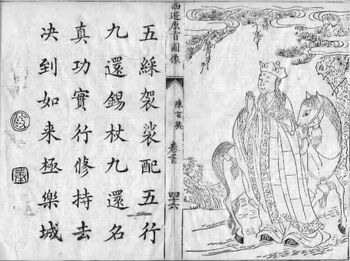 五綵袈裟配五行
九還錫杖九還名
真功實行修持去
决到如来極樂城
西遊原旨圖像
陳玄奘
卷首
四十六